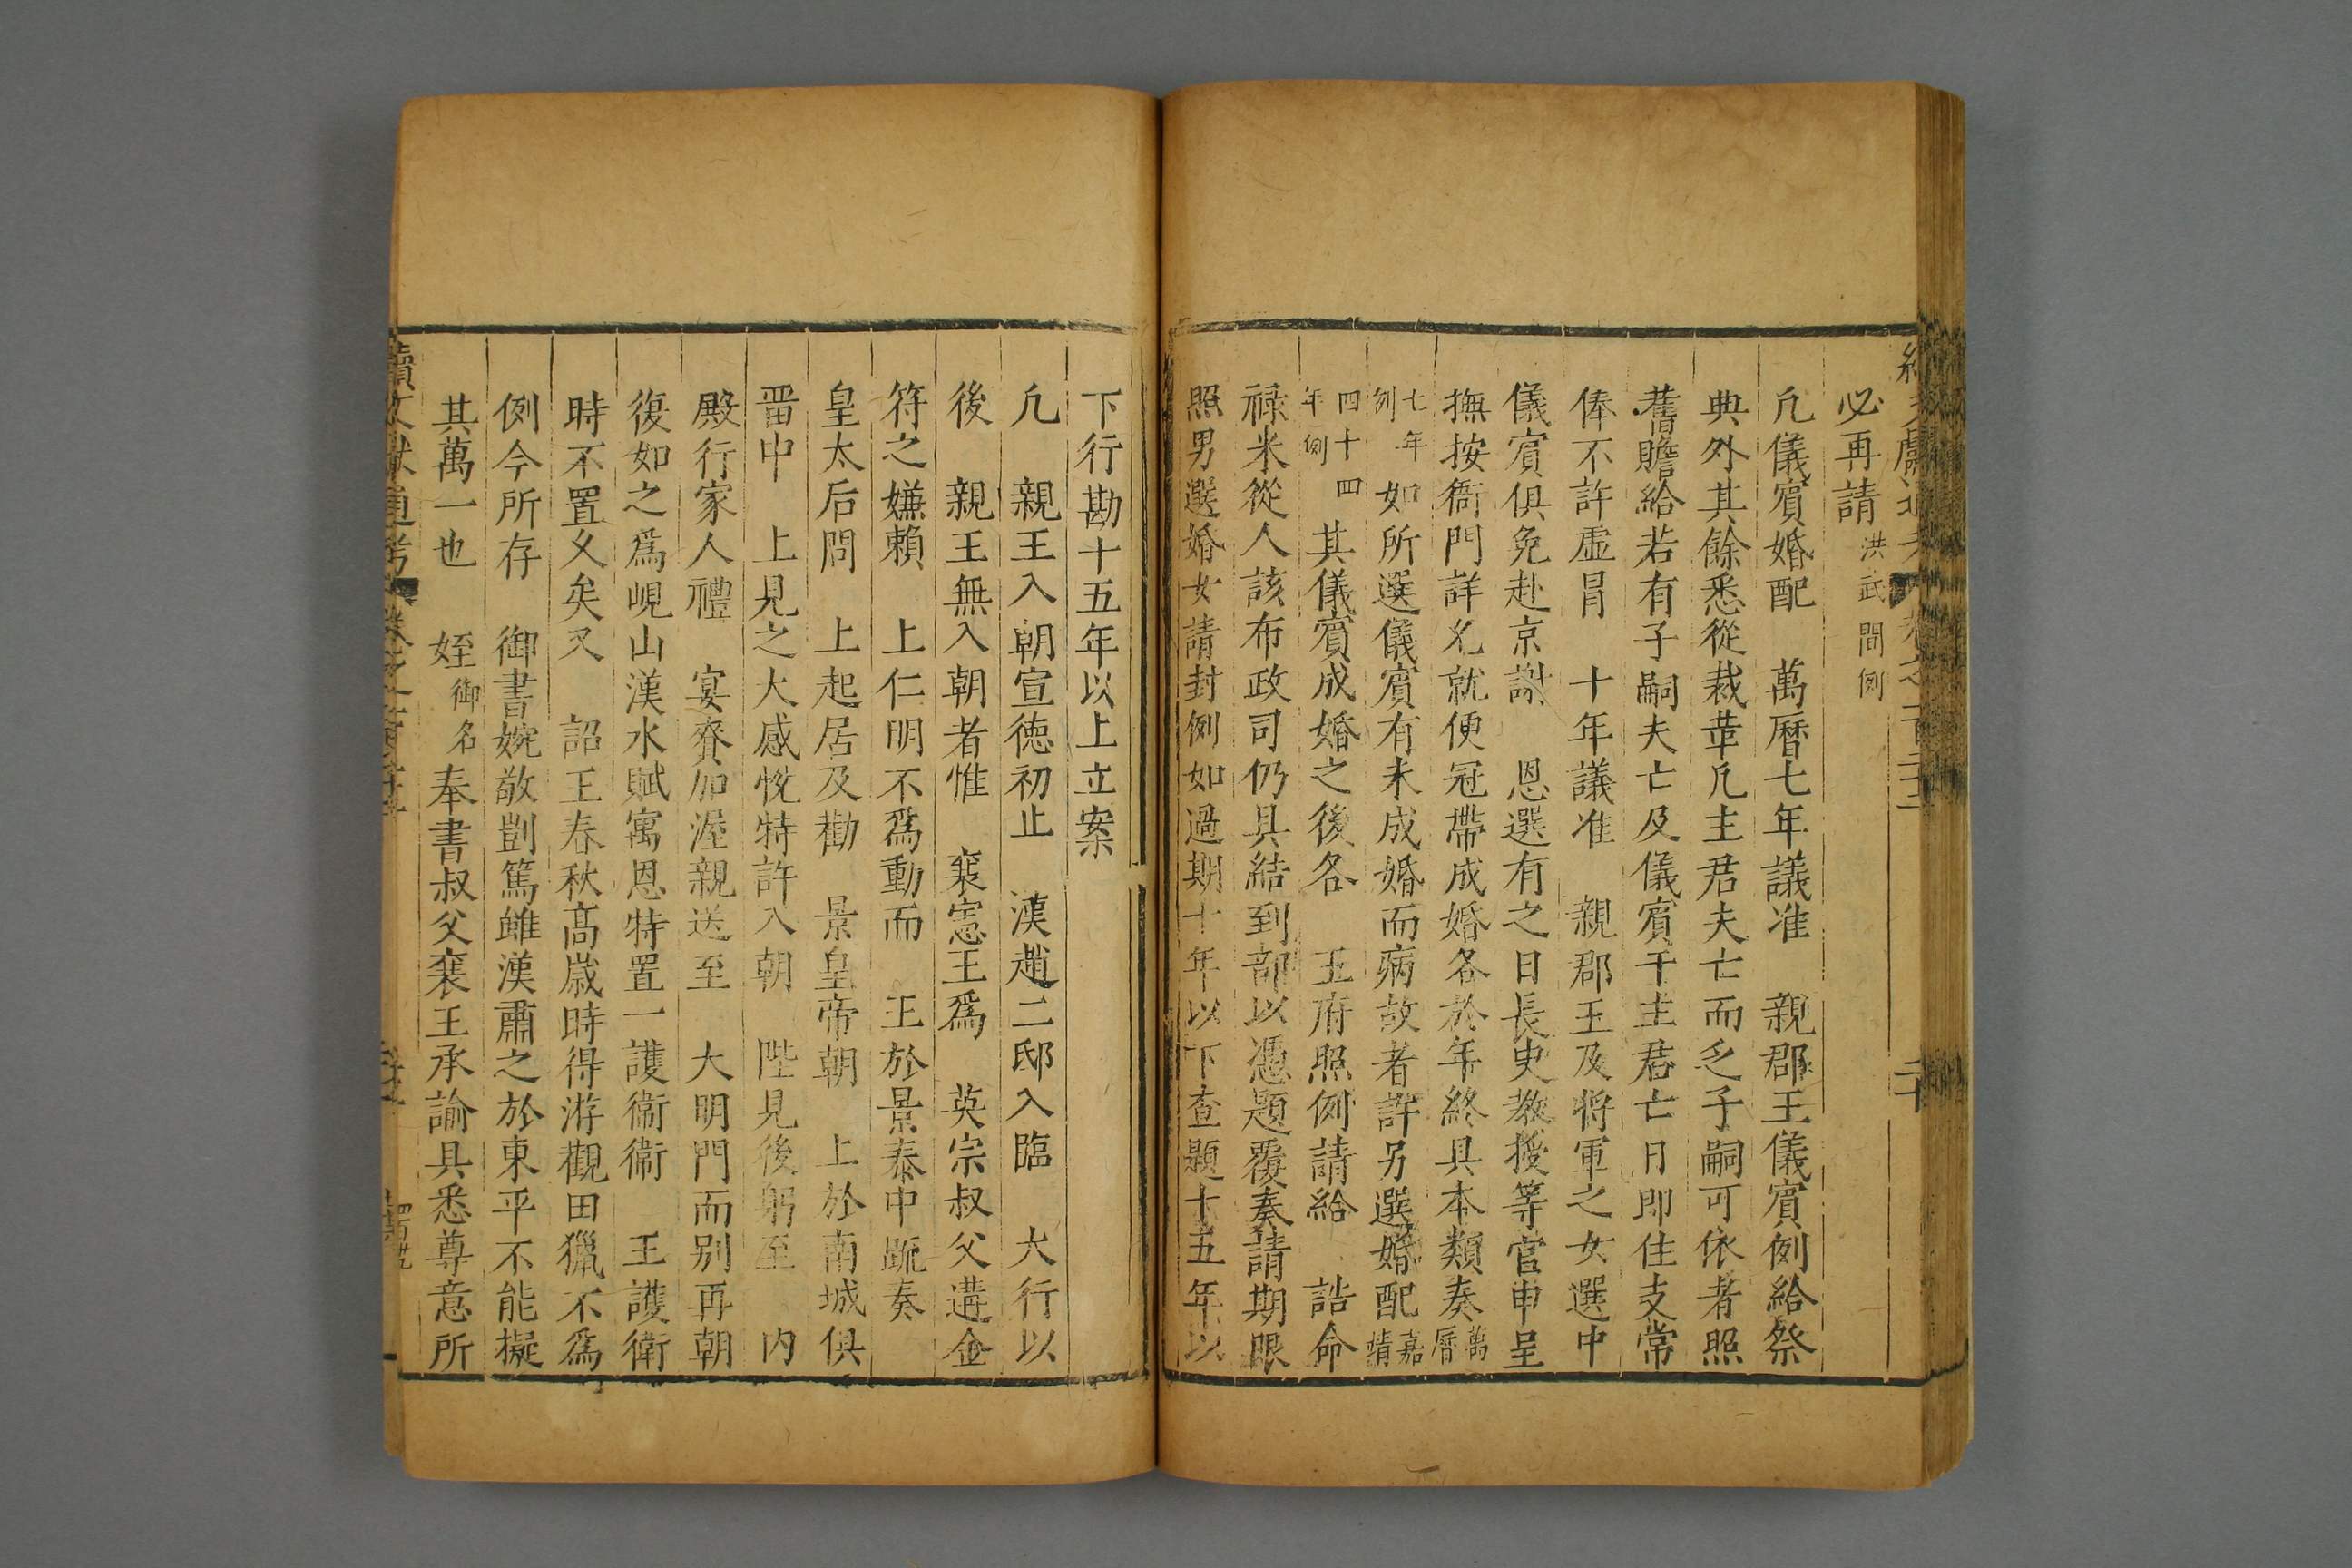 必再請洪武間例
凡儀賓婚配　萬曆七年議准　親郡王儀賓例給祭
典外其餘悉從裁革凡主君夫亡而乏子嗣可依者照
舊贍給若有子嗣夫亡及儀賓干主君亡日即住支常
俸不許虛冐　十年議准　親郡王及將軍之女選中
儀賓俱免赴京謝　恩選有之日長史教授等官申呈
撫按衙門詳允就便冠帶成婚各於年終具本類奏萬曆
七年例如所選儀賓有未成婚而病故者許另選婚配嘉靖
四十四年例其儀賓成婚之後各　王府照例請給　誥命
祿米從人該布政司仍具結到部以憑題覆奏請期限
照男選婚女請封例如過期十年以下查題十五年以
下行勘十五年以上立案
凡　親王入朝宣徳初止　漢趙二邸入臨　大行以
後　親王無入朝者惟　襄憲王爲　英宗叔父遘金
符之嫌賴　上仁明不爲動而　王於景泰中䟽奏
皇太后問　上起居及勸　景皇帝朝　上於南城俱
畱中　上見之大感悅特許入朝　陛見後躬至　内
殿行家人禮　宴賚加渥親送至　大明門而别再朝
復如之爲峴山漢水賦寓恩特置一護衞衞　王護衛
時不置乆矣又　詔王春秋髙歲時得游觀田獵不爲
例今所存　御書婉敬剴篤雖漢肅之於東平不能擬
其萬一也　姪御名奉書叔父襄王承諭具悉尊意所
續文獻通考